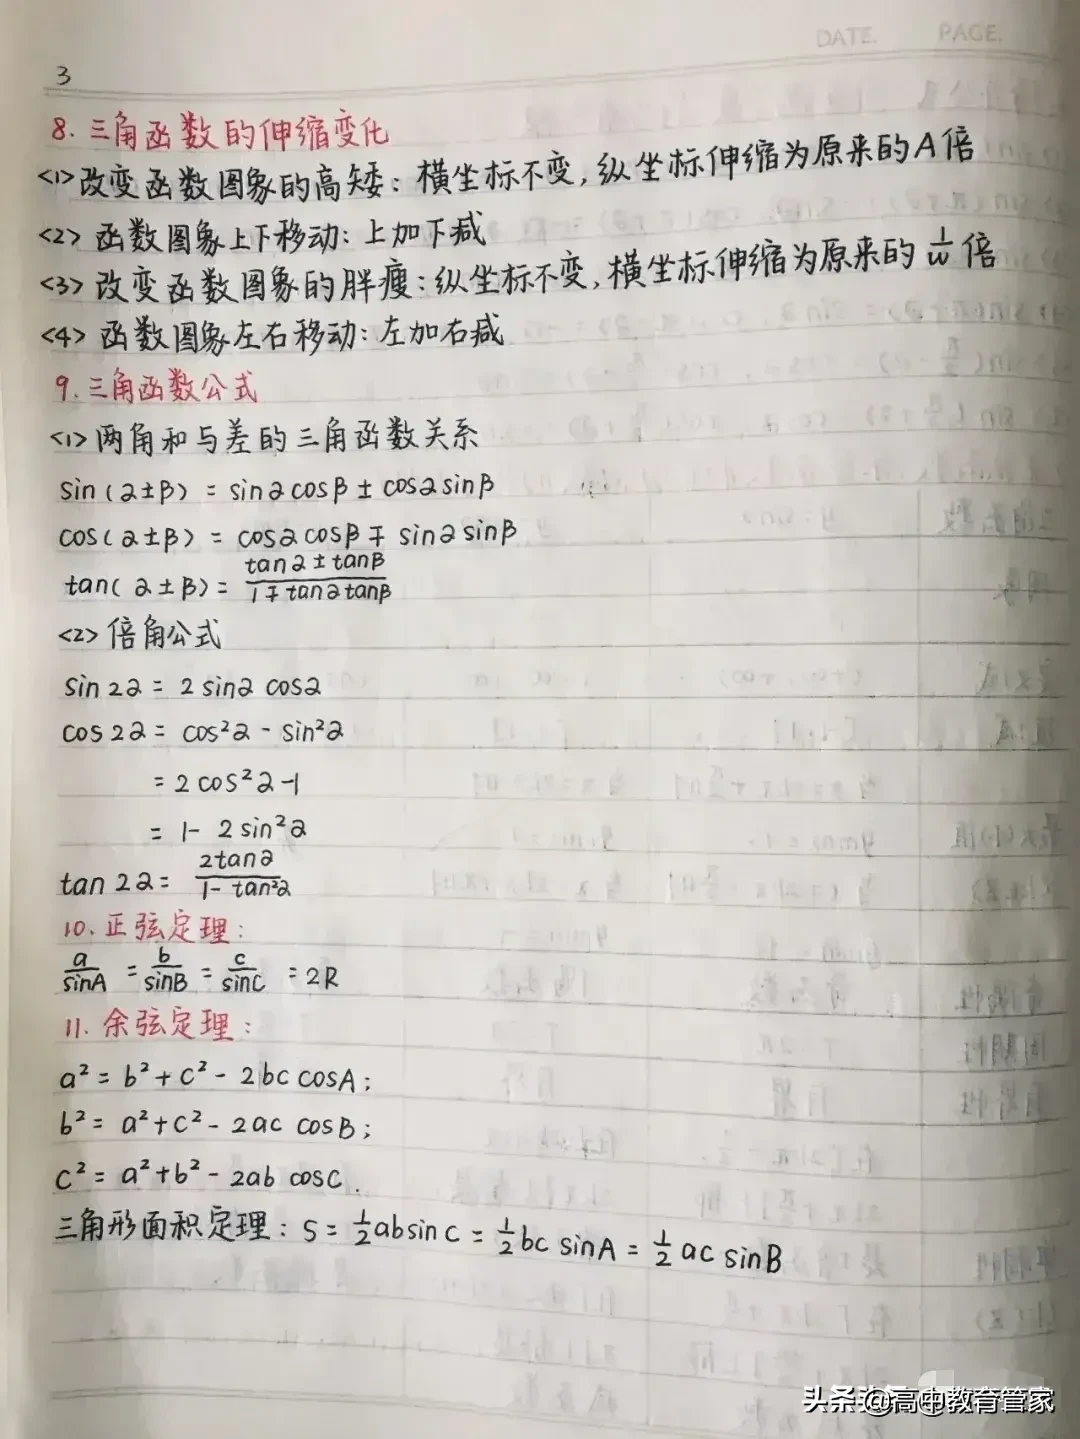 DATE. PAGE.
3
8. 三角函数的伸缩变化
<1>改变函数图象的高矮：横坐标不变，纵坐标伸缩为原来的A倍
<2> 函数图象上下移动：上加下减
<3> 改变函数图象的胖瘦：纵坐标不变，横坐标伸缩为原来的 1/w 倍
<4> 函数图象左右移动：左加右减
9. 三角函数公式
<1> 两角和与差的三角函数关系
sin(α±β) = sinαcosβ ± cosαsinβ
cos(α±β) = cosαcosβ ∓ sinαsinβ
tan(α±β) = (tanα±tanβ)/(1∓tanαtanβ)
<2> 倍角公式
sin2α = 2sinα cosα
cos2α = cos²α - sin²α
= 2cos²α-1
= 1- 2sin²α
tan2α = 2tanα/(1-tan²α)
10. 正弦定理：
a/sinA = b/sinB = c/sinC = 2R
11. 余弦定理：
a² = b² + c² - 2bc cosA;
b² = a² + c² - 2ac cosB;
c² = a² + b² - 2ab cosC.
三角形面积定理：S = 1/2 absinC = 1/2 bc sinA = 1/2 ac sinB
头条@高中教育管家